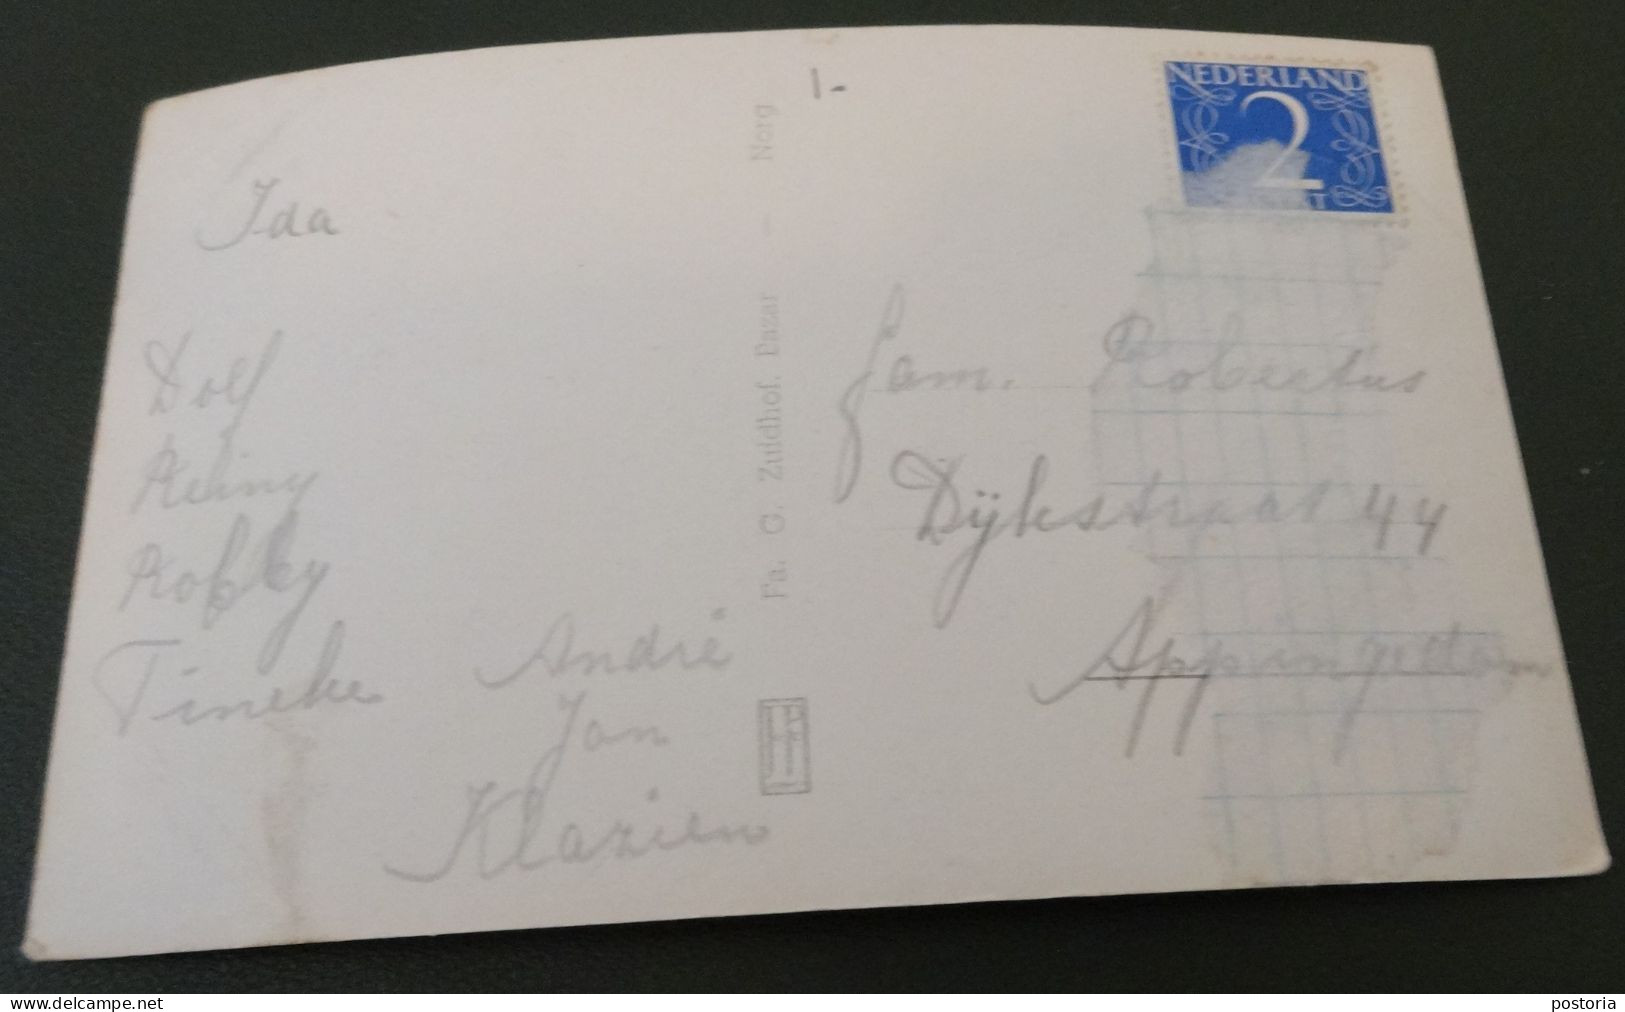 1.-
NEDERLAND
2
Ida
Dolf
Reiny
Robby
Tineke
André
Jan
Klazien
Fa. G. Zuidhof. Bazar - Norg
Fam. Robertus
Dijkstraat 44
Appingedam
www.delcampe.net
postoria